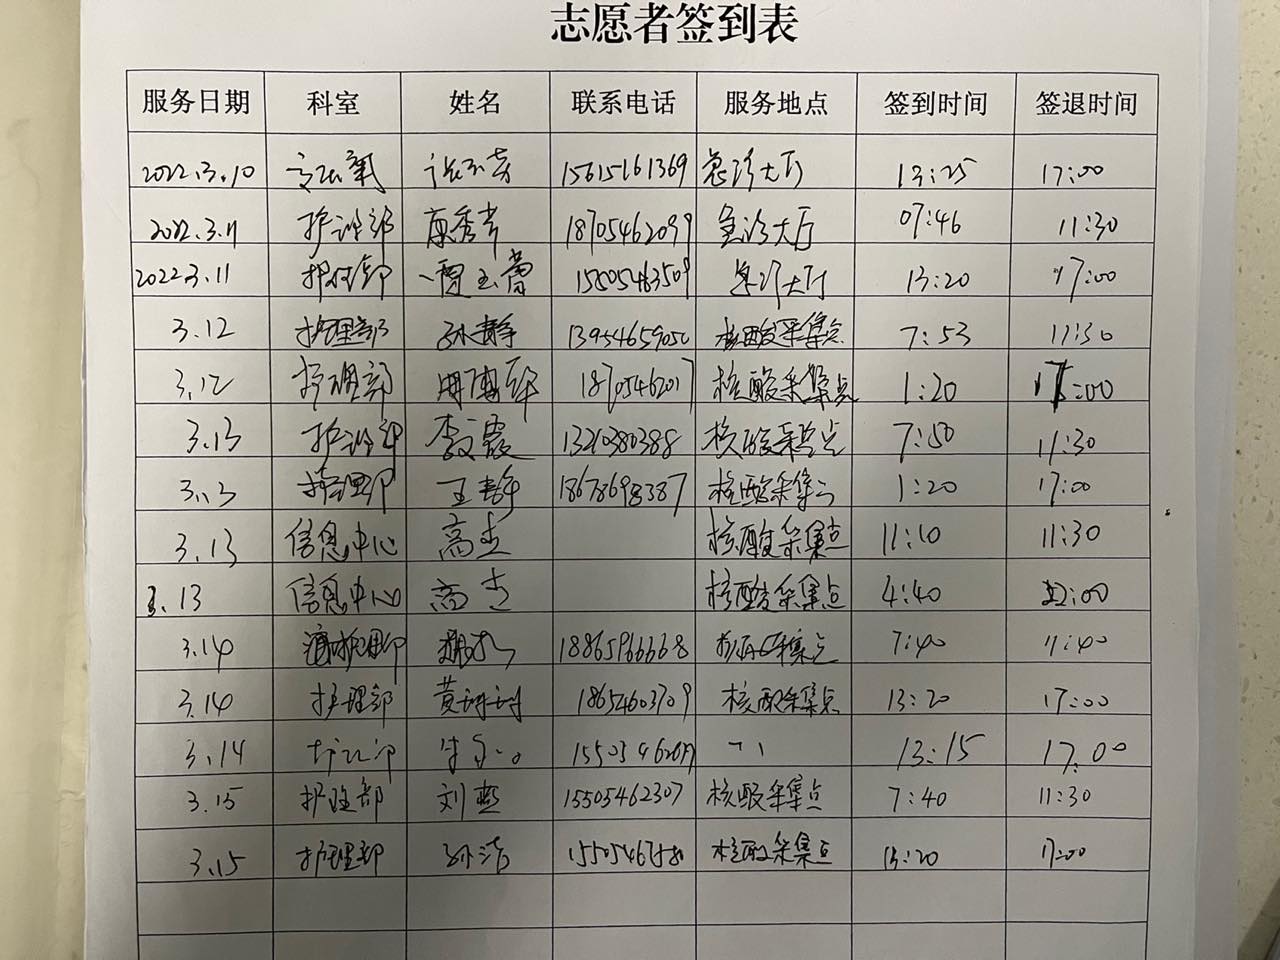 志愿者签到表
服务日期 科室 姓名 联系电话 服务地点 签到时间 签退时间
2022.3.10 高压氧 15615161369 急诊大厅 13:25 17:00
2022.3.11 护理部 康秀 18705462099 急诊大厅 07:46 11:30
2022.3.11 护理部 贾玉蕾 15505463509 急诊大厅 13:20 17:00
3.12 护理部 孙静 13954659050 核酸采集点 7:53 11:30
3.12 护理部 周 核酸采集点 1:20 17:00
3.13 护理部 李霞 1321380388 核酸采集点 7:50 11:30
3.13 护理部 王静 18678698387 核酸采集点 1:20 17:00
3.13 信息中心 高杰 核酸采集点 11:10 11:30
3.13 信息中心 高杰 核酸采集点 4:40 22:00
3.14 护理部 18865966668 核酸采集点 7:40 11:40
3.14 护理部 黄珊珊 18654603709 核酸采集点 13:20 17:00
3.14 护理部 13:15 17.00
3.15 护理部 刘燕 15505462307 核酸采集点 7:40 11:30
3.15 护理部 孙洁 核酸采集点 13:20 17:00